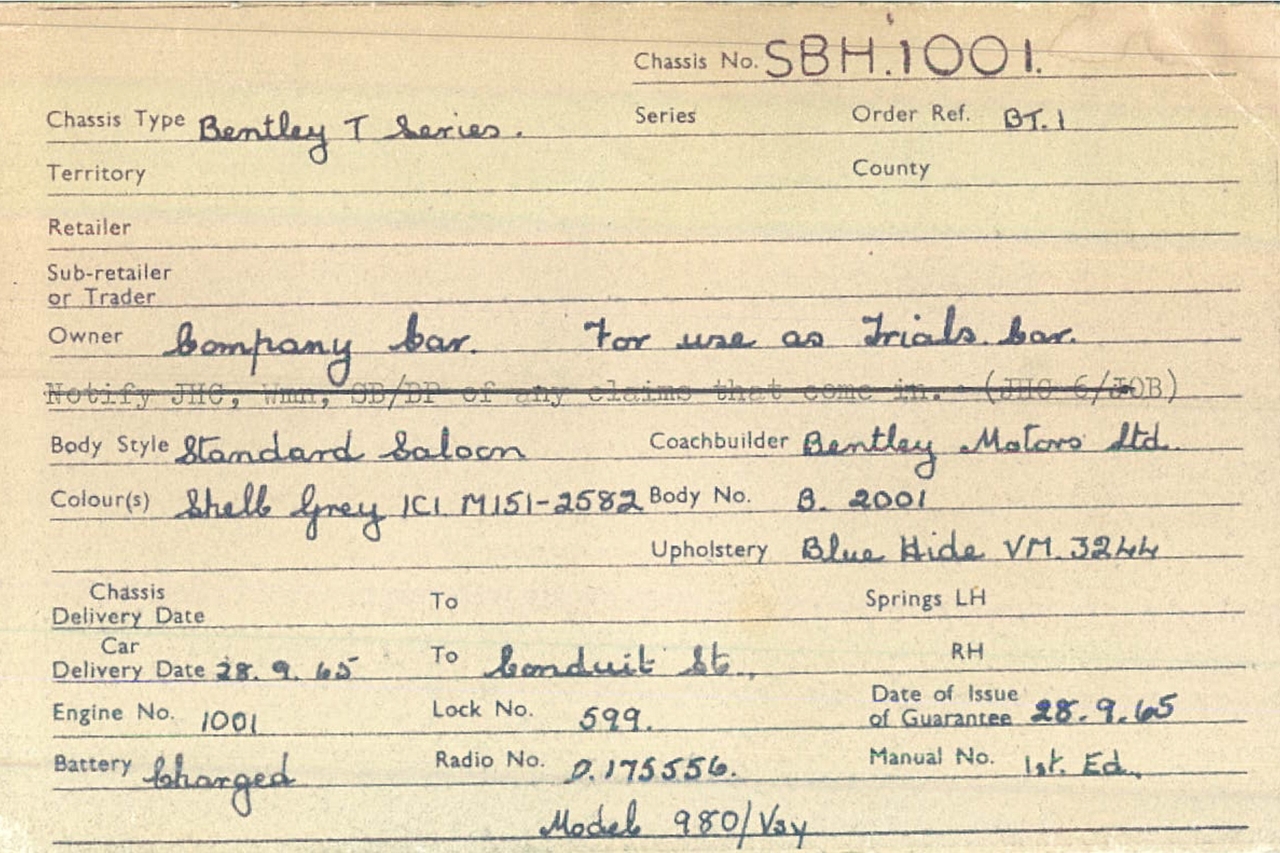 Chassis No. SBH.1001.
Chassis Type Bentley T Series. Series Order Ref. BT.1
Territory County
Retailer
Sub-retailer
or Trader
Owner Company Car. For use as Trials Car.
Notify JHC, Wmn, SB/BP of any claims that come in. (JHC 6/JOB)
Body Style Standard Saloon Coachbuilder Bentley Motors Ltd.
Colour(s) Shell Grey ICI M151-2582 Body No. B. 2001
Upholstery Blue Hide VM.3244
Chassis
Delivery Date To Springs LH
Car
Delivery Date 28.9.65 To Conduit St., RH
Engine No. 1001 Lock No. 599. Date of Issue
of Guarantee 28.9.65
Battery Charged Radio No. D.175556. Manual No. 1st. Ed.
Model 980/